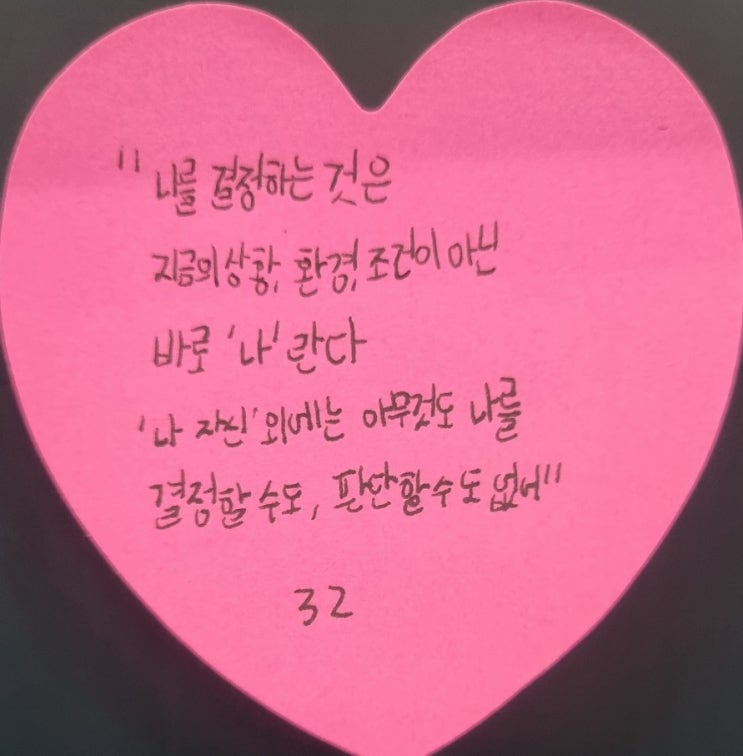 "나를 결정하는 것은
지금의 상황, 환경, 조건이 아닌
바로 '나'란다
'나 자신' 외에는 아무것도 나를
결정할 수도, 판단할 수도 없어"
32